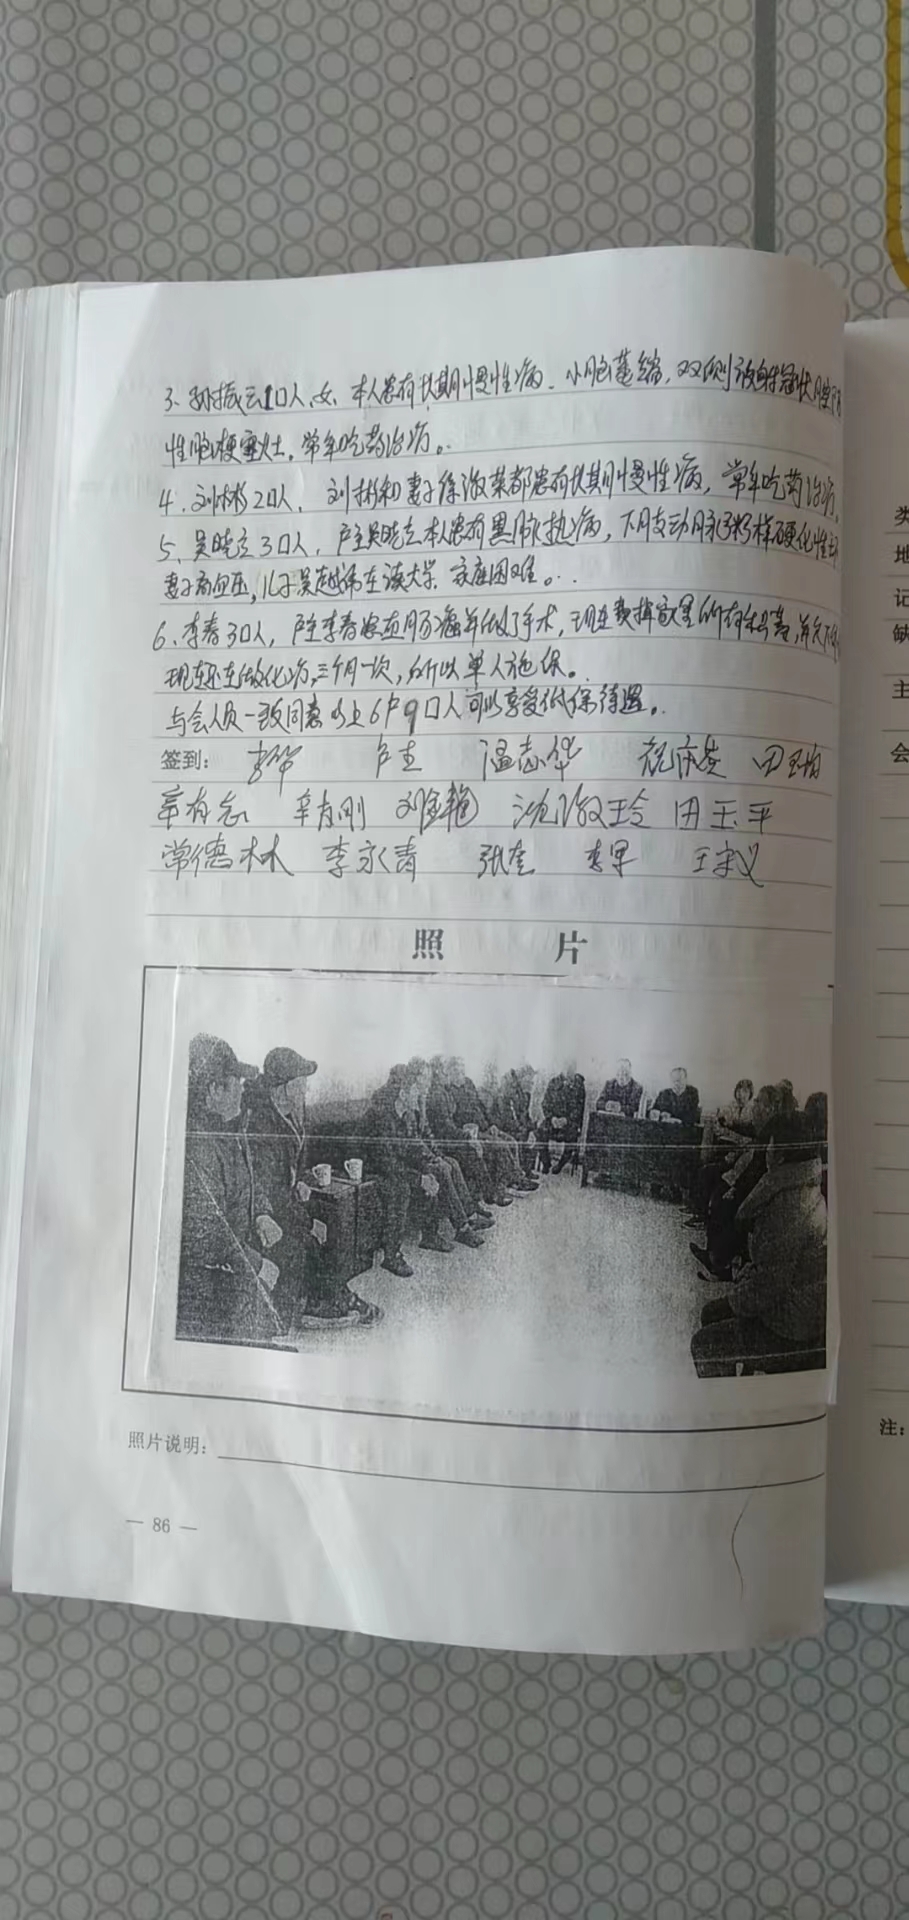 3、孙振云1口人、女、本人患有长期慢性病、小脑萎缩，双侧放射冠状
性脑梗塞灶。常年吃药治疗。
4、刘彬2口人，刘彬和妻子徐淑荣都患有长期慢性病，常年吃药治疗。
5、吴晓立3口人，户主吴晓立本人患有黑脉热病，下肢动脉粥样硬化性
妻子高血压，儿子吴越 在读大学 家庭困难。
6、李春3口人，户主李春患直肠癌并做了手术，现在 家里所有积蓄，
现在还在做化疗，三个月一次，所以单人施保。
与会人员一致同意以上6户9口人可以享受低保待遇。
签到： 温志华 田玉均
辛有志 辛有刚 刘 艳 沈淑玲 田玉平
常德林 李永青 张奎 李军 王宗义
照 片
照片说明：
— 86 —
类
地
记
缺
主
会
注：